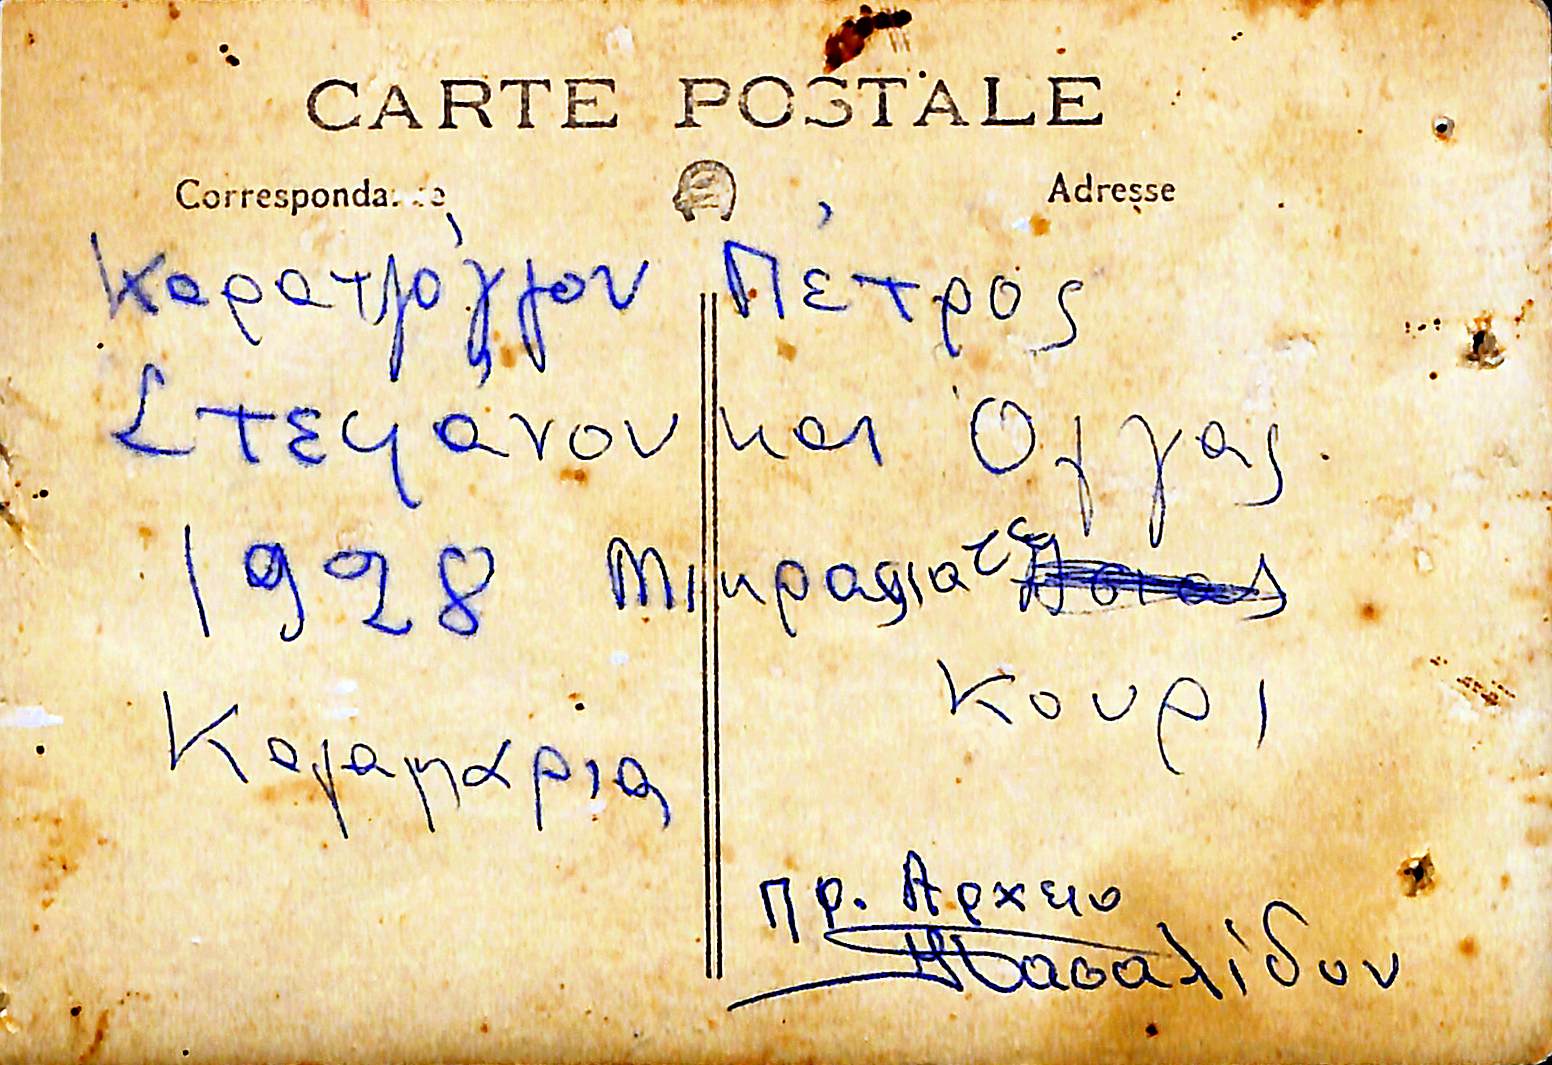 CARTE POSTALE
Correspondance Adresse
Καρατζόγλου Πέτρος
Στεφάνου και Όλγας.
1928 Μικρασιατε
Κουρι
Καλαμάρια
πρ. Αρχειο
Πασαλίδου